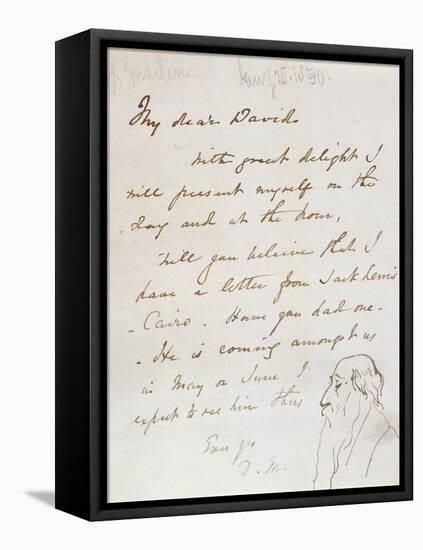 D. Maclise Jany 25. 1850.
My dear David
With great delight I
will present myself on the
day and at the hour,
Will you believe that I
have a letter from Jack Lewis
- Cairo. Have you had one -
- He is coming amongst us
in May or June I
expect to see him thus
Ever yrs
D. M.